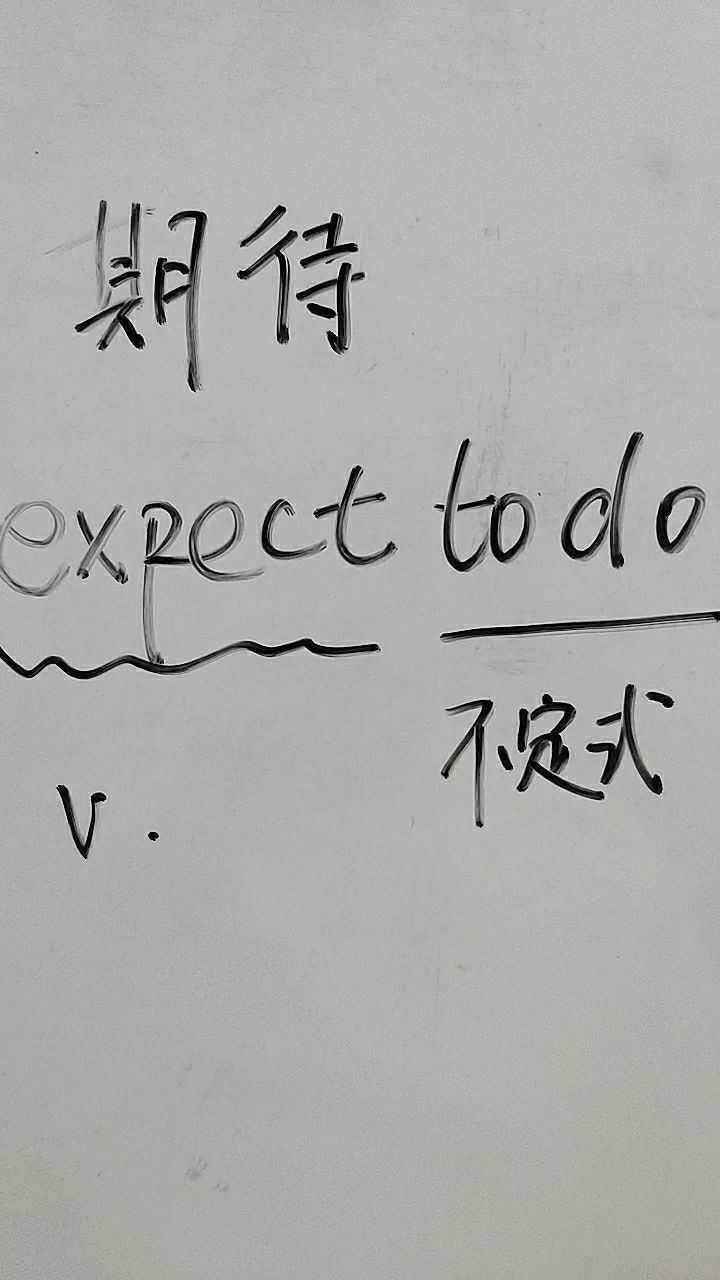 期待
expect to do
不定式
v.